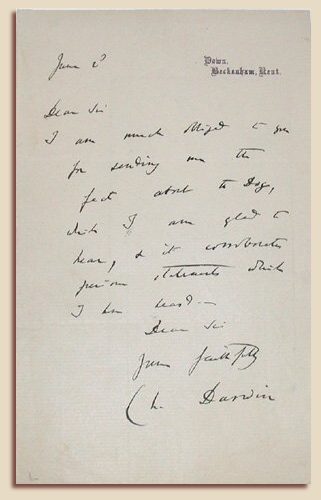 June 2
Down,
Beckenham, Kent.
Dear Sir
I am much obliged to you
for sending me the
fact about the Dog,
which I am glad to
hear, as it corroborates
previous statements which
I have heard.—
Dear Sir
Yours faithfully
Ch. Darwin